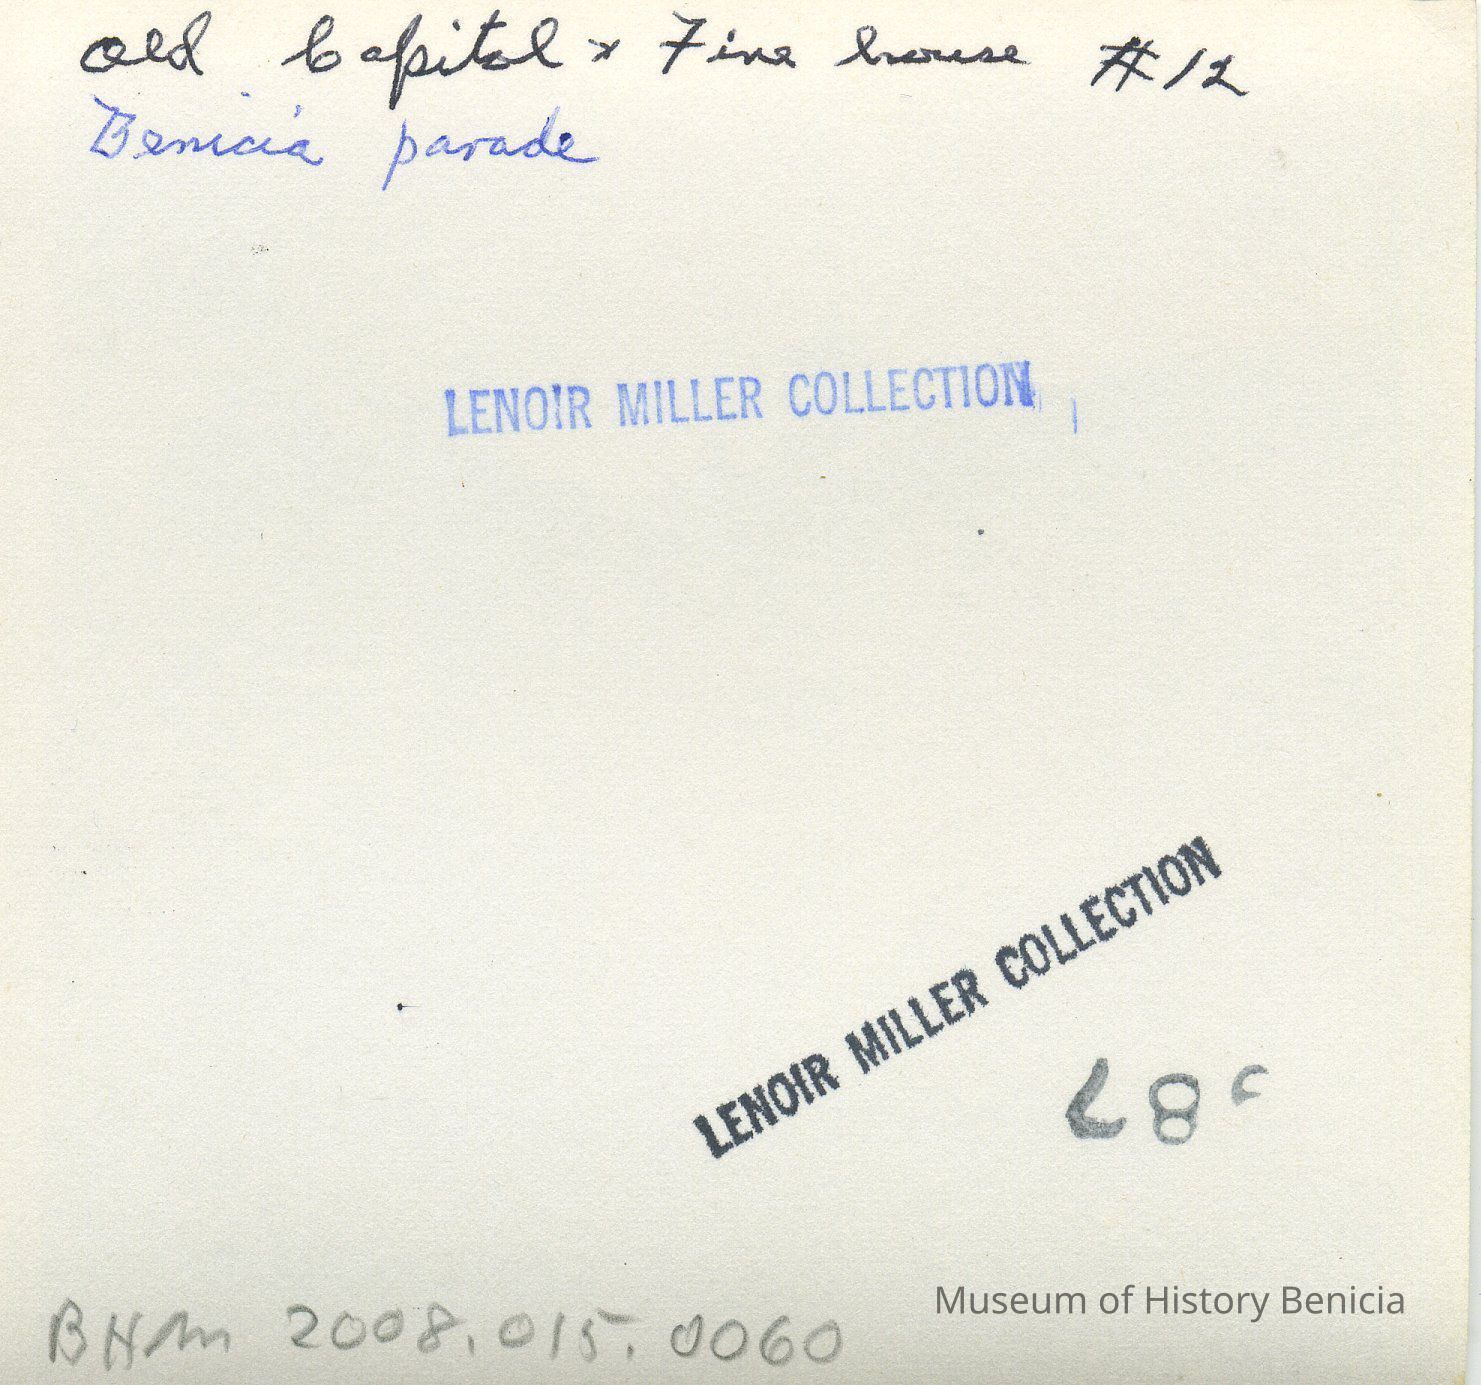 Old Capitol + Fire house #12
Benicia parade
LENOIR MILLER COLLECTION
LENOIR MILLER COLLECTION
BHM 2008.015.0060
Museum of History Benicia